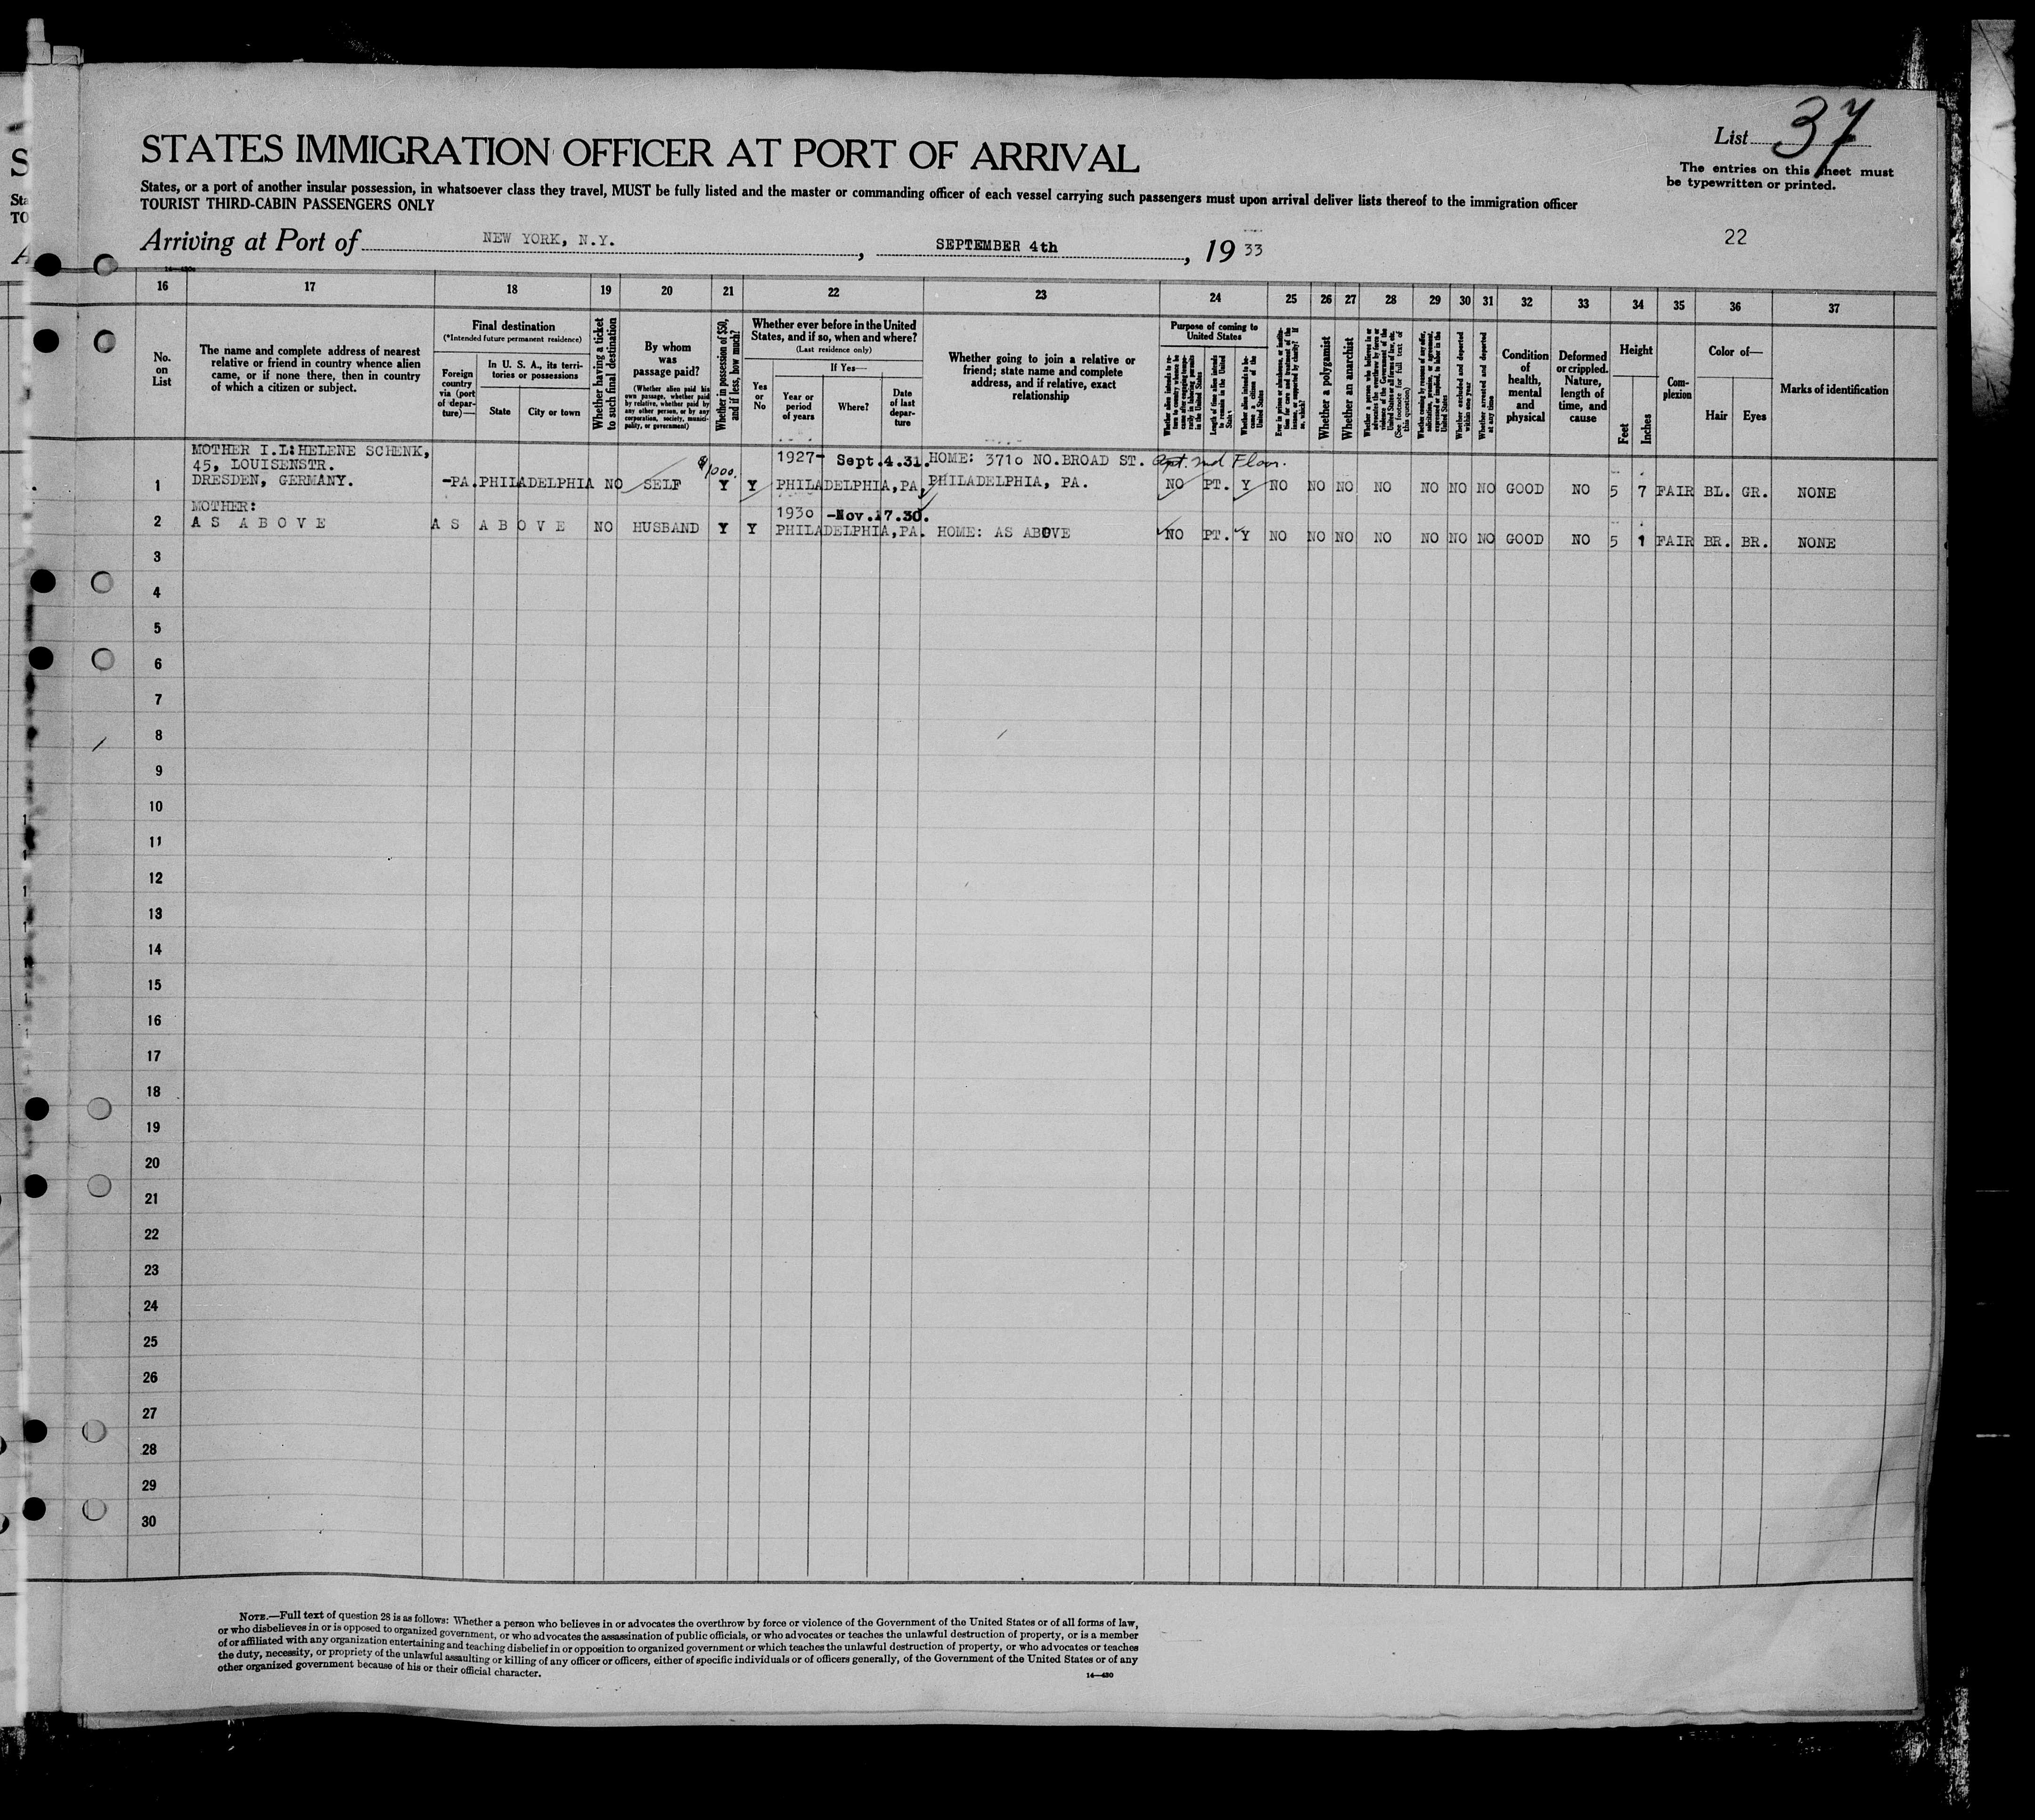 List 37
STATES IMMIGRATION OFFICER AT PORT OF ARRIVAL
The entries on this sheet must
be typewritten or printed.
States, or a port of another insular possession, in whatsoever class they travel, MUST be fully listed and the master or commanding officer of each vessel carrying such passengers must upon arrival deliver lists thereof to the immigration officer
TOURIST THIRD-CABIN PASSENGERS ONLY
Arriving at Port of NEW YORK, N.Y. , SEPTEMBER 4th , 19 33
22
16 17 18 19 20 21 22 23 24 25 26 27 28 29 30 31 32 33 34 35 36 37
No. on List
The name and complete address of nearest relative or friend in country whence alien came, or if none there, then in country of which a citizen or subject.
Final destination
(*Intended future permanent residence)
Foreign country via (port of departure)—
In U. S. A., its territories or possessions
State
City or town
Whether having a ticket to such final destination
By whom was passage paid?
(Whether alien paid his own passage, whether paid by relative, whether paid by any other person, or by any corporation, society, municipality, or government)
Whether in possession of $50, and if less, how much?
Whether ever before in the United States, and if so, when and where?
(Last residence only)
Yes or No
If Yes—
Year or period of years
Where?
Date of last departure
Whether going to join a relative or friend; state name and complete address, and if relative, exact relationship
Purpose of coming to United States
Length of time alien intends to remain in the United States
Whether alien intends to become a citizen of the United States
Whether a polygamist
Whether an anarchist
(See footnote for full text of this question)
Whether arrested and deported at any time
Condition of health, mental and physical
Deformed or crippled. Nature, length of time, and cause
Height
Feet
Inches
Complexion
Color of—
Hair
Eyes
Marks of identification
MOTHER I.L:HELENE SCHENK,
45, LOUISENSTR.
1 DRESDEN, GERMANY. -PA. PHILADELPHIA NO SELF $1000. Y Y 1927- Sept.4.31. PHILADELPHIA,PA. HOME: 3710 NO.BROAD ST. Apt. 2nd Floor. PHILADELPHIA, PA. NO PT. Y NO NO NO NO NO NO NO GOOD NO 5 7 FAIR BL. GR. NONE
MOTHER:
2 AS ABOVE AS ABOVE NO HUSBAND Y Y 1930 -Nov.17.30. PHILADELPHIA,PA. HOME: AS ABOVE NO PT. Y NO NO NO NO NO NO NO GOOD NO 5 1 FAIR BR. BR. NONE
3
4
5
6
7
8
9
10
11
12
13
14
15
16
17
18
19
20
21
22
23
24
25
26
27
28
29
30
NOTE.—Full text of question 28 is as follows: Whether a person who believes in or advocates the overthrow by force or violence of the Government of the United States or of all forms of law,
or who disbelieves in or is opposed to organized government, or who advocates the assassination of public officials, or who advocates or teaches the unlawful destruction of property, or is a member
of or affiliated with any organization entertaining and teaching disbelief in or opposition to organized government or which teaches the unlawful destruction of property, or who advocates or teaches
the duty, necessity, or propriety of the unlawful assaulting or killing of any officer or officers, either of specific individuals or of officers generally, of the Government of the United States or of any
other organized government because of his or their official character.
14—430